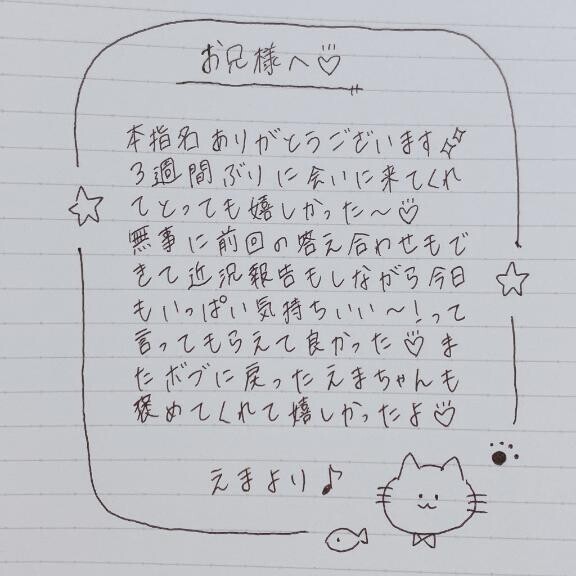 お兄様へ♡
本指名ありがとうございます✨
3週間ぶりに会いに来てくれ
てとっても嬉しかった〜♡
無事に前回の答え合わせもで
きて近況報告もしながら今日
もいっぱい気持ちいい〜!って
言ってもらえて良かった♡ま
たボブに戻ったえまちゃんも
褒めてくれて嬉しかったよ♡
えまより♪